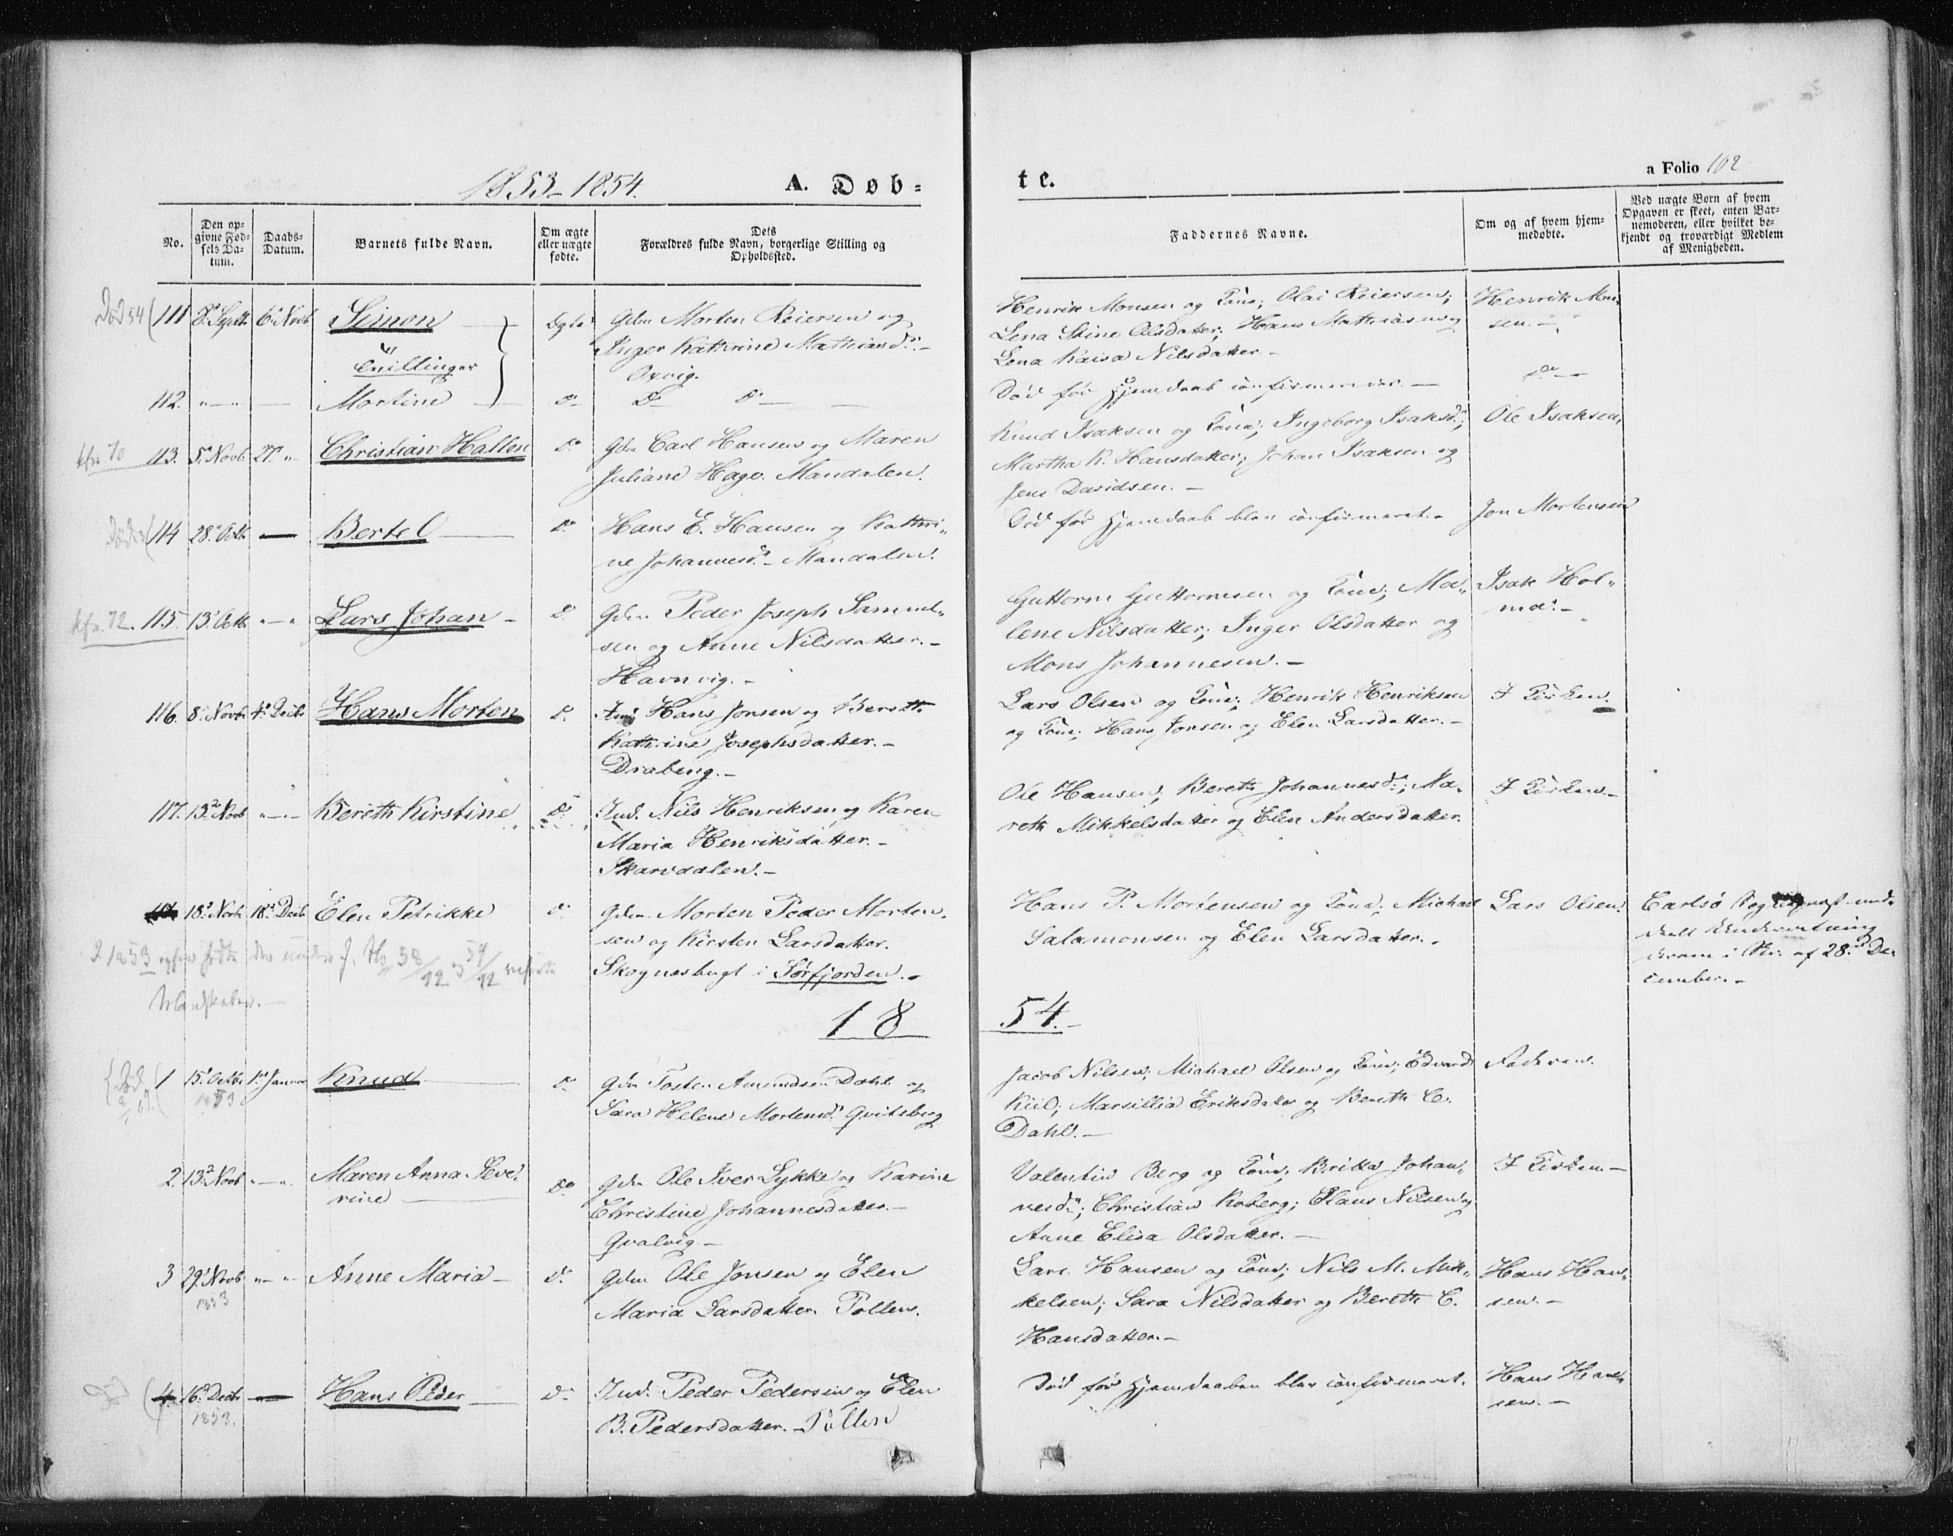 1853-1854.
A. Døb-
te.
a Folio 102
No.
Den op-
givne Fød-
sels Da-
tum.
Daabs-
Datum.
Barnets fulde Navn.
Om ægte
eller uægte
fødte.
Dets
Forældres fulde Navn, borgerlige Stilling og
Opholdssted.
Faddernes Navne.
Om og af hvem hjem-
medøbte.
Ved uægte Børn af hvem
Opgaven er skeet, enten Bar-
nemoderen, eller hvilket be-
kjendt og troværdigt Medlem
af Menigheden.
Død 54 111 8de Septb 6te Novb Simon Ægte Gdm Morten Reiersen og
Inger Kathrine Mathiasd. -
Oxvig.
Henrik Monsen og Kone; Olai Reiersen;
Lena Stine Olsdatter; Hans Mathiasen og
Lena Kaisa Nilsdatter. -
Henrik Mon-
sen. -
Tvillinger
112. " - " - Martine Do Do Do -
Død før Hjemdaab confirmeredes. -
Do -
kfr. 70 113. 5te Novb 27. " Christian Hallen Do Gdm Carl Hansen og Maren
Juliane Hago. Mandalen.
Knud Isaksen og Kone; Ingeborg Isaksd.;
Martha K. Hansdatter; Johan Isaksen og
Jens Davidsen. -
Ole Isaksen.
Død 53 114 28de Octb - Bertel Do Hans E. Hansen og Kathri-
ne Johannesd. - Mandalen.
Død før Hjemdaab blev confirmeret. -
Jon Mortensen
kfr. 72. 115. 13de Octb. " - " Lars Johan - Do Gdm Peder Joseph Samuel-
sen og Anne Nilsdatter. -
Havnvig. -
Guttorm Guttormsen og Kone; Ma-
lene Nilsdatter; Inger Olsdatter og
Mons Johannesen. -
Isak Hol-
ma. -
116. 8de Novb 4de Decbr Hans Morten Do Hans Jonsen og Bereth
Kathrine Josephsdatter. -
Drabeng. -
Lars Olsen og Kone; Henrik Henriksen
og Kone; Hans Jonsen og Elen Larsdatter. -
I Kirken.
117. 13de Novb " - " Bereth Kirstine Do Ind. Nils Henriksen og Karen
Maria Henriksdatter. -
Skarvdalen. -
Ole Hansen; Bereth Johannesd.; Ma-
reth Mikkelsdatter og Elen Andersdatter.
I Kirken. -
18de Novb 18de Decb Elen Petrikke Do Gdm Morten Peder Morten-
sen og Kirsten Larsdatter.
Skognæsbugt i Sørfjorden. -
Hans P. Mortensen og Kone; Michael
Salamonsen og Elen Larsdatter. -
Lars Olsen.
Carlsø
Underretning
derom i Br. af 28de De-
cember. -
1853
Mandskaber. -
1854. -
Død 1 15de Octbr 1ste Januar Knud Do Gdm Tosten Amundsen Dahl og
1853
Sara Helene Mortensd. Qvitebierg
Jacob Nilsen; Michael Olsen og Kone; Edvard
Kiil; Marsillia Eriksdatter og Bereth C.
Dahl. -
Faderen.
2. 13de Novb " - " Maren Anna Seve-
rine Do Gdm Ole Iver Lykke og Karine
Christine Johannesdatter. -
Qvalvig -
Valentin Berg og Kone; Britha Johan-
nesd.; Christian Koberg; Claus Nilsen og
Anne Elisa Olsdatter. -
I Kirken -
3 29de Novb " - " Anne Maria - Do Gdm Ole Jonsen og Elen
1853
Maria Larsdatter. Pollen.
Lars Hansen og Kone; Nils M. Mik-
kelsen; Sara Nilsdatter og Bereth C.
Hansdatter. -
Hans Han-
sen. -
4. 16de Decbr - Hans Peder - Do Ind. Peder Pedersen og Elen
1853.
B. Pedersdatter. - Pollen
Død før Hjemdaaben blev confirmeret.
Hans Han-
sen. -